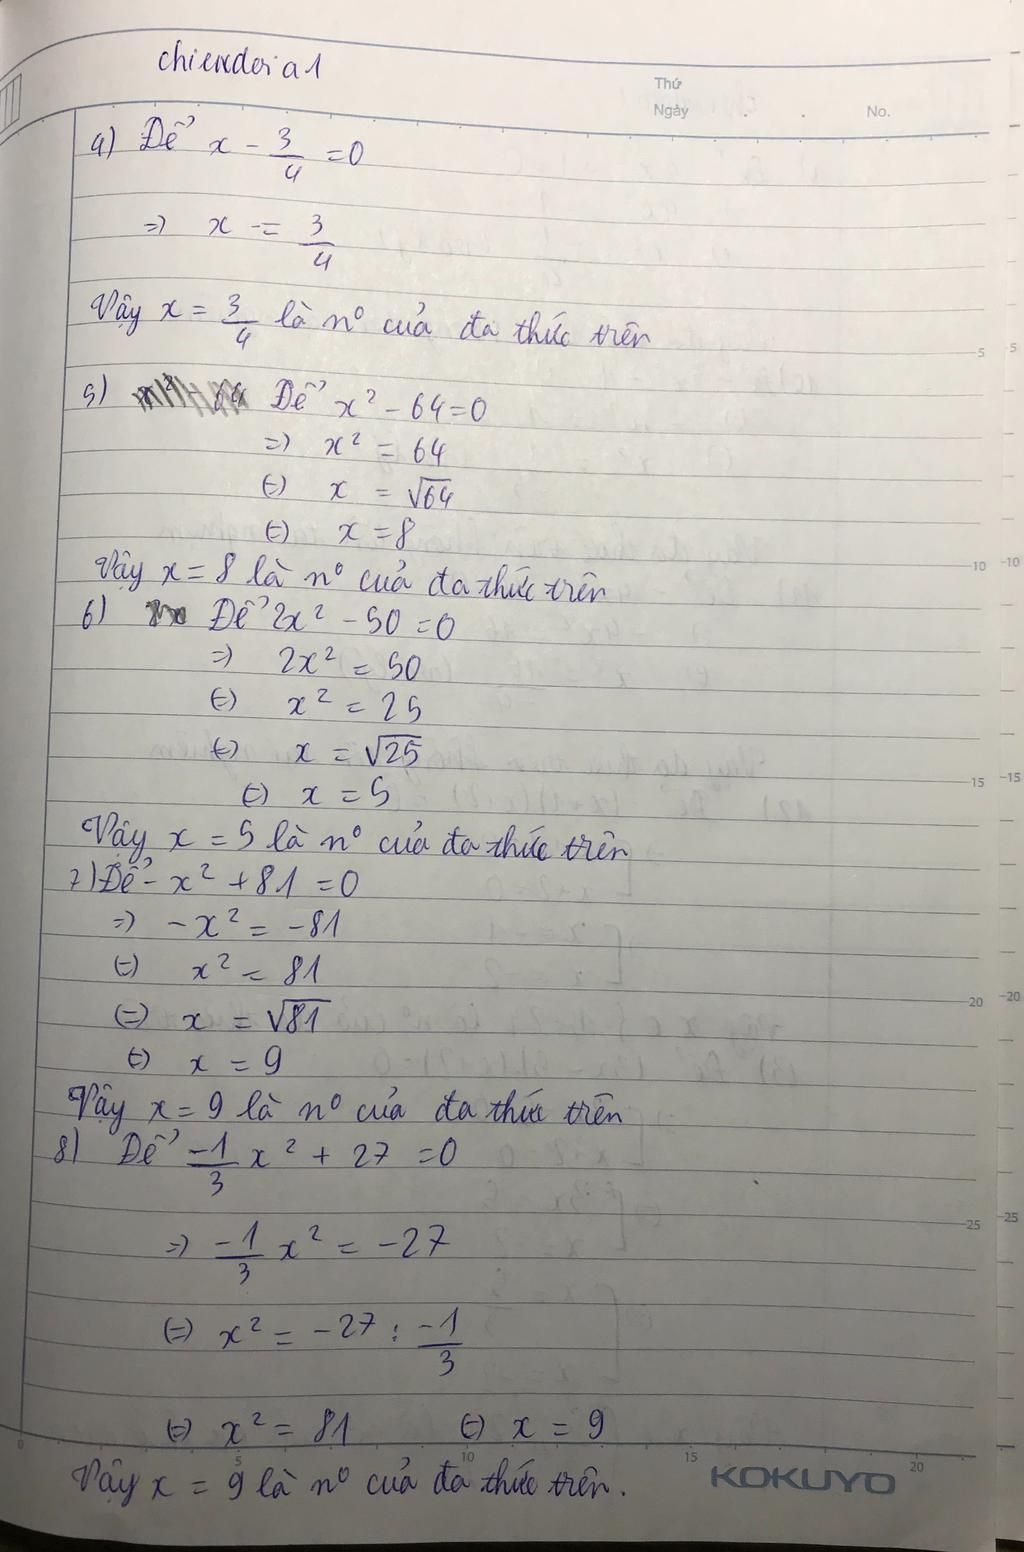 chiendoi a1
Thứ
Ngày . . No.
4) Để x - 3/4 = 0
=) x = 3/4
Vậy x = 3/4 là n° của đa thức trên
5) Để x² - 64 = 0
=) x² = 64
(=) x = √64
(=) x = 8
Vậy x = 8 là n° của đa thức trên
6) Để 2x² - 50 = 0
=) 2x² = 50
(=) x² = 25
(=) x = √25
(=) x = 5
Vậy x = 5 là n° của đa thức trên
7) Để - x² + 81 = 0
=) -x² = -81
(=) x² = 81
(=) x = √81
(=) x = 9
Vậy x = 9 là n° của đa thức trên
8) Để -1/3 x² + 27 = 0
=) -1/3 x² = -27
(=) x² = -27 : -1/3
(=) x² = 81 (=) x = 9
Vậy x = 9 là n° của đa thức trên.
KOKUYO